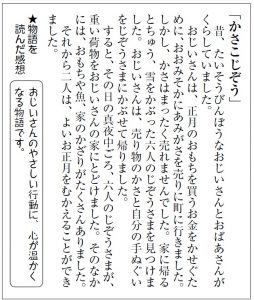 「かさこじぞう」
昔、たいそうびんぼうなおじいさんとおばあさんが
くらしていました。
おじいさんは、正月のおもちを買うお金をかせぐた
めに、おおみそかにあみがさを売りに町に行きました。
しかし、かさはまったく売れませんでした。家に帰る
とちゅう、雪をかぶった六人のじぞうさまを見つけま
した。おじいさんは、売り物のかさと自分の手ぬぐい
をじぞうさまにかぶせて帰りました。
すると、その日の真夜中ごろ、六人のじぞうさまが、
重い荷物をおじいさんの家にとどけました。そのなか
には、おもちや魚、家のかざりがたくさんありました。
それから二人は、よいお正月をむかえることができ
ました。
★物語を
読んだ感想
おじいさんのやさしい行動に、心が温かく
なる物語です。